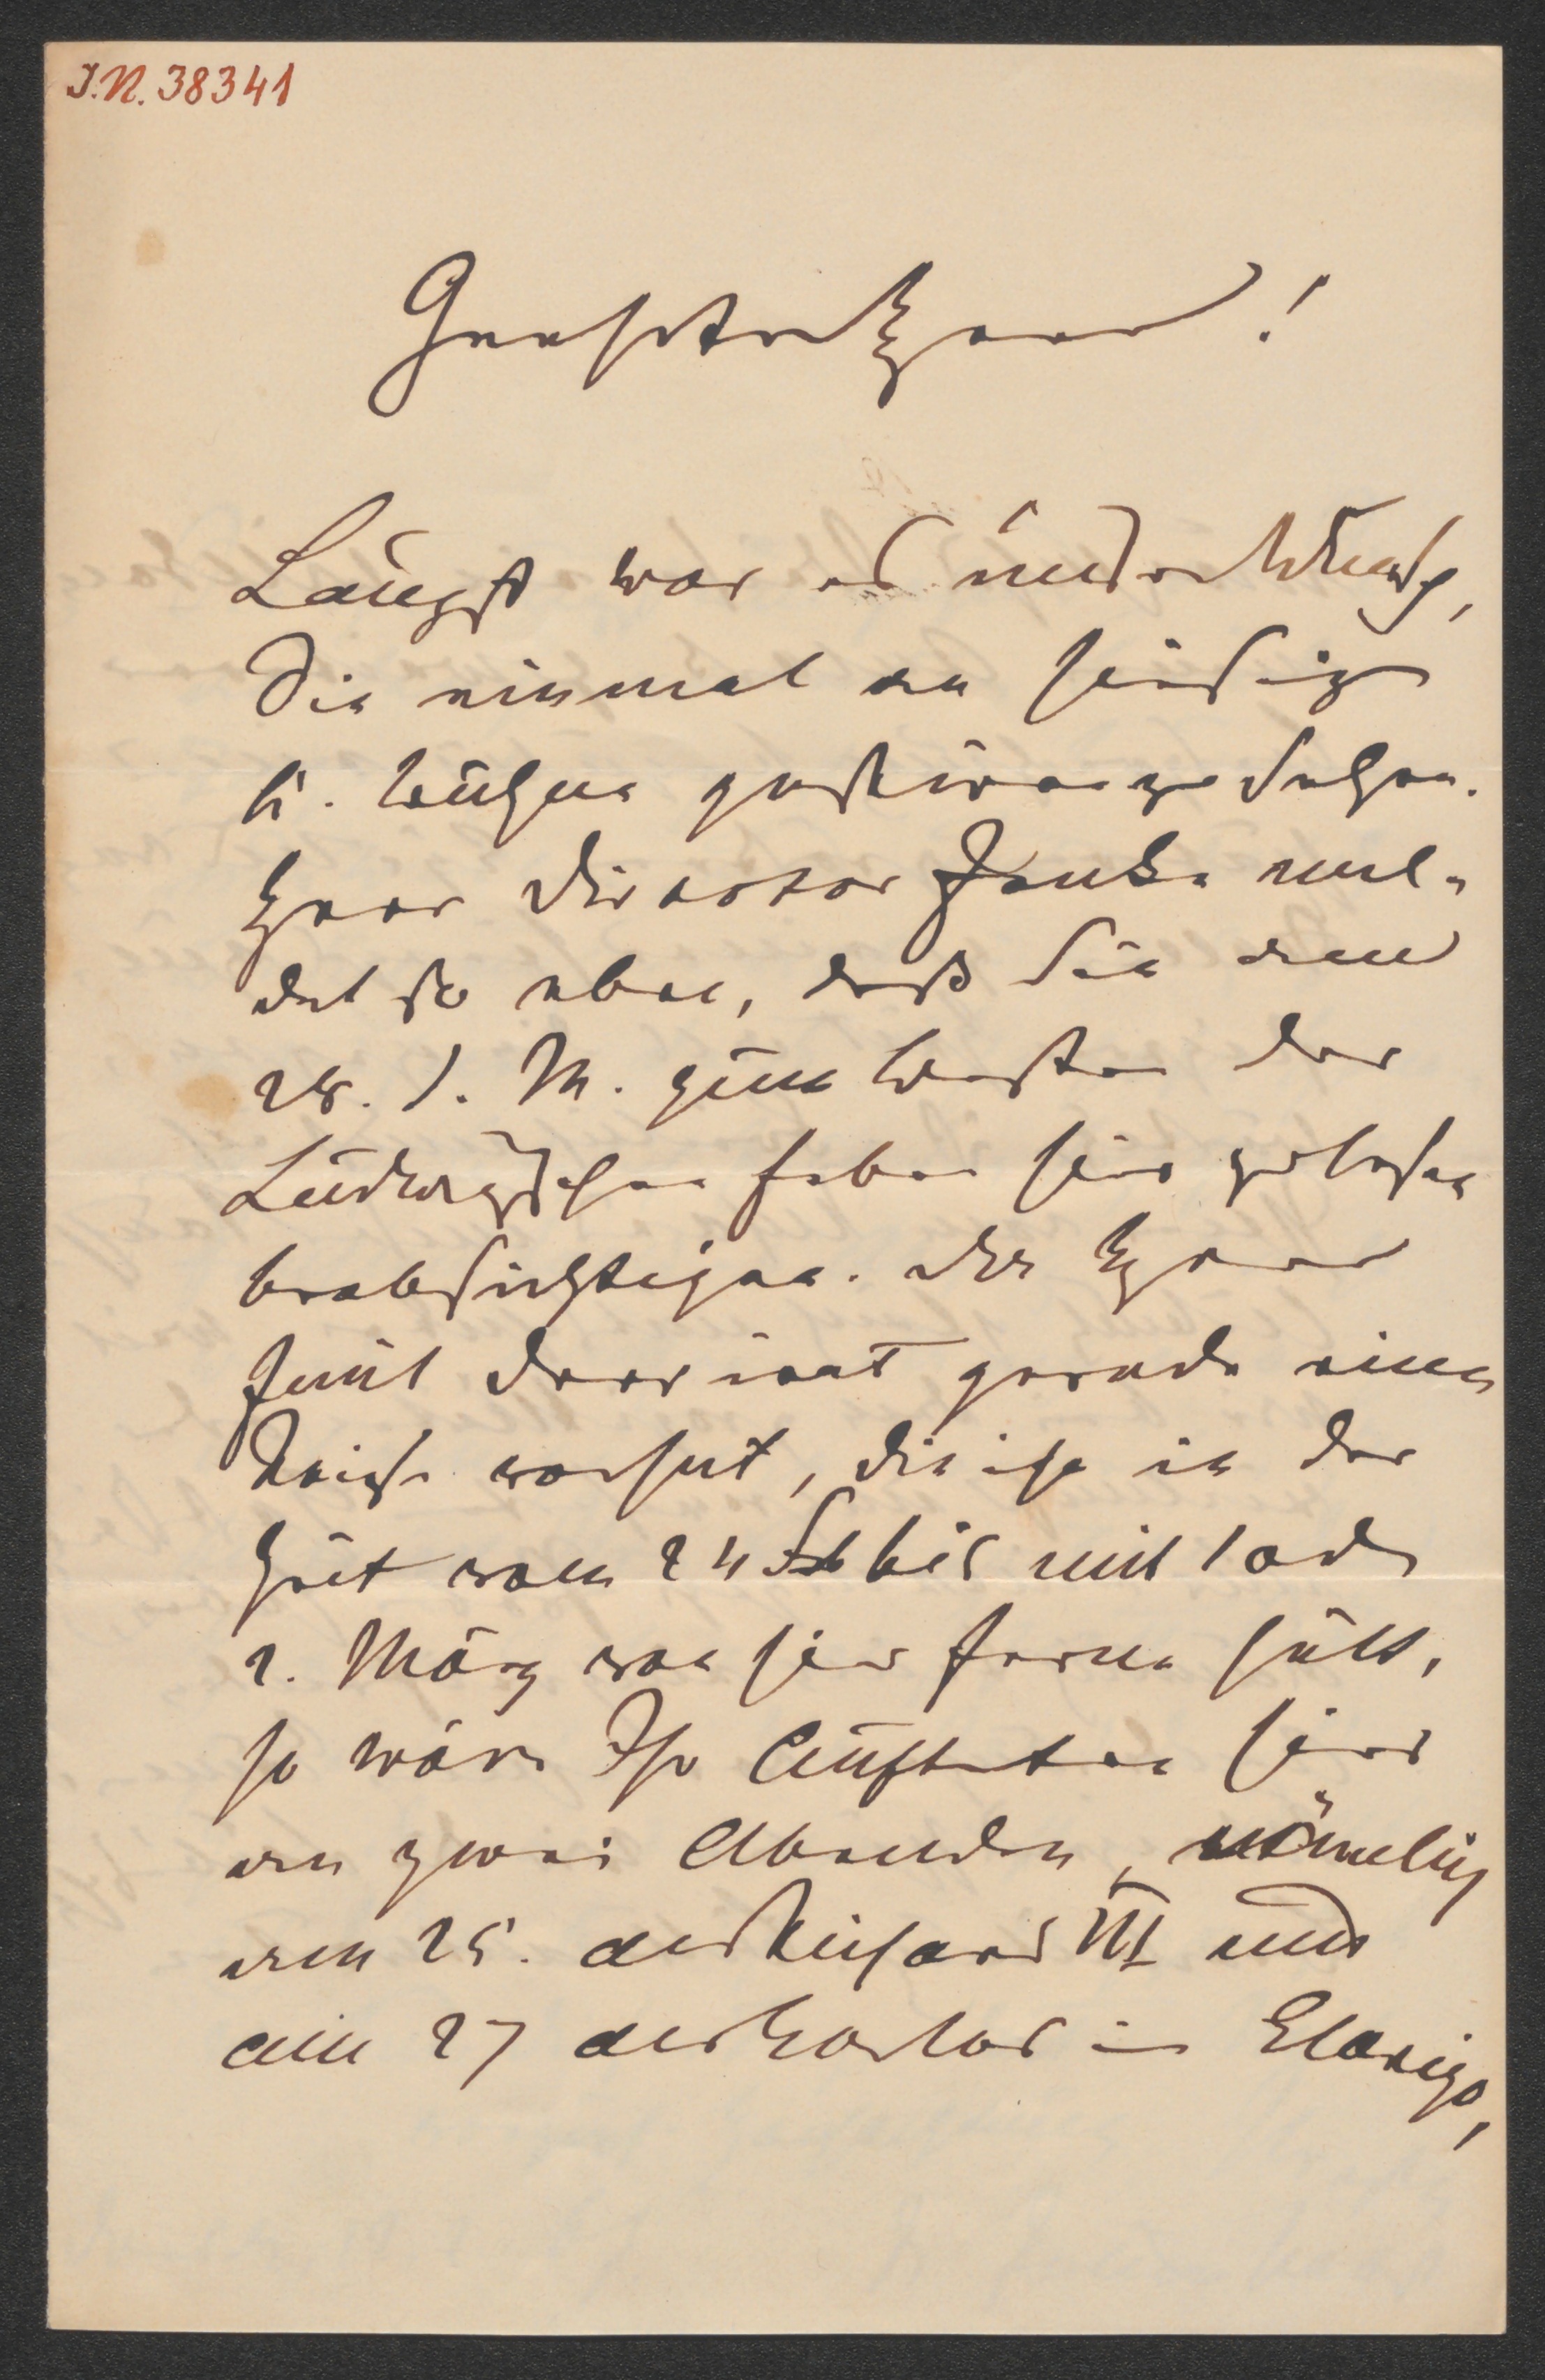 I.N. 38341
Geehrter Herr!
Längst war es unser Wunsch,
Sie einmal an hiesiger
k. Bühne gastiren zu sehen.
Herr Director Jauner mel-
det so eben, daß Sie am
28. l. M. zum Besten der
Ludwigschen hier zu lesen
beabsichtigen. Da Herr
Emil Devrient gerade eine
Reise vorhat, die ihn in der
Zeit vom 24 Feb bis mit 1 oder
2. März von hier ferne hält,
so wäre Ihr Auftreten hier
an zwei Abenden, nämlich
am 25. als Richard III und
am 27 als Carlos in Clavigo,